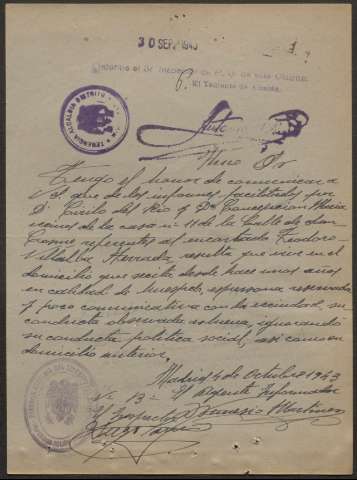 30 SEP. 1943
Informe el Sr. Inspector de P. U. de este Distrito.
El Teniente de Alcalde,
TENENCIA ALCALDIA DISTRITO
Ilmo Sr
Tengo el honor de comunicar a
V.I. que de los informes facilitados por
D. Cirilo del Rio y Dª Concepcion Maria
vecinos de la casa nº 11 de la Calle de San
Cosme referentes al encartado Teodoro
Villalba Herrada, resulta que vive en el
domicilio que se cita desde hace unos años
en calidad de huesped, es persona reservada
y poco comunicativa con la vecindad, su
conducta observada es buena, ignorando
su conducta politica social, asi como su
domicilio anterior.
Madrid 4 de Octubre 1943
Vº Bº El Agente Informador
El Inspector Damaso Martinez